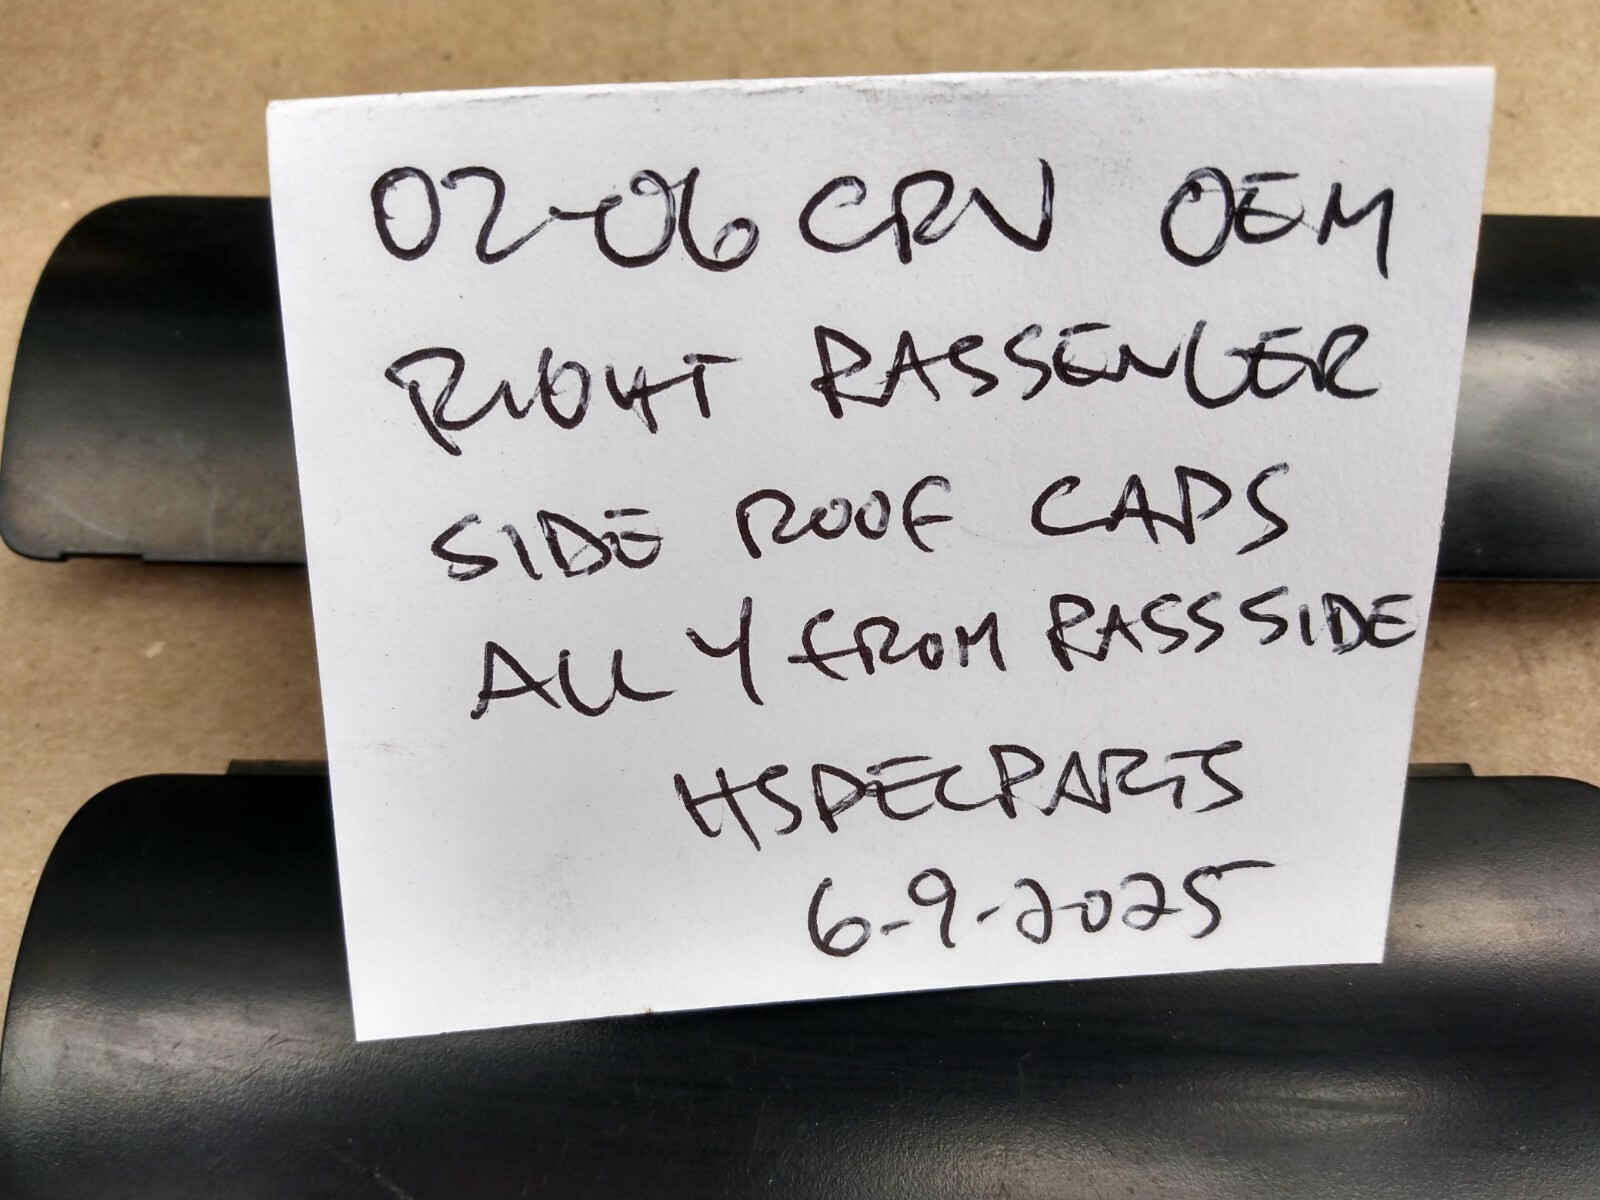 02-06 CRV OEM
RIGHT PASSENGER
SIDE ROOF CAPS
ALL 4 FROM PASS SIDE
HSPECPARTS
6-9-2025